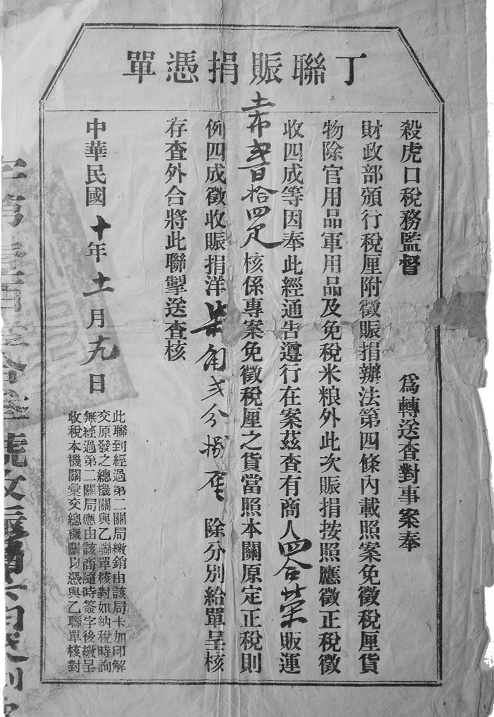 丁聯賑捐憑單
殺虎口稅務監督 爲轉送查對事案奉
財政部頒行稅厘附徵賑捐辦法第四條內載照案免徵稅厘貨
物除官用品軍用品及免稅米粮外此次賑捐按照應徵正稅徵
收四成等因奉此經通告遵行在案茲查有商人四合荣販運
土布 百拾四疋核係專案免徵稅厘之貨當照本關原定正稅則
例四成徵收賑捐洋柒角弍分捌厘除分別給單呈核
存查外合將此聯擊送查核
中華民國十年十一月九日
此聯到經過第二關局繳銷由該局卡加印解
交原發之總機關與乙聯單核對如納稅時詢
無經過第二關局應由該商隨時簽字後繳呈
收稅本機關彙交總機關以憑與乙聯單核對